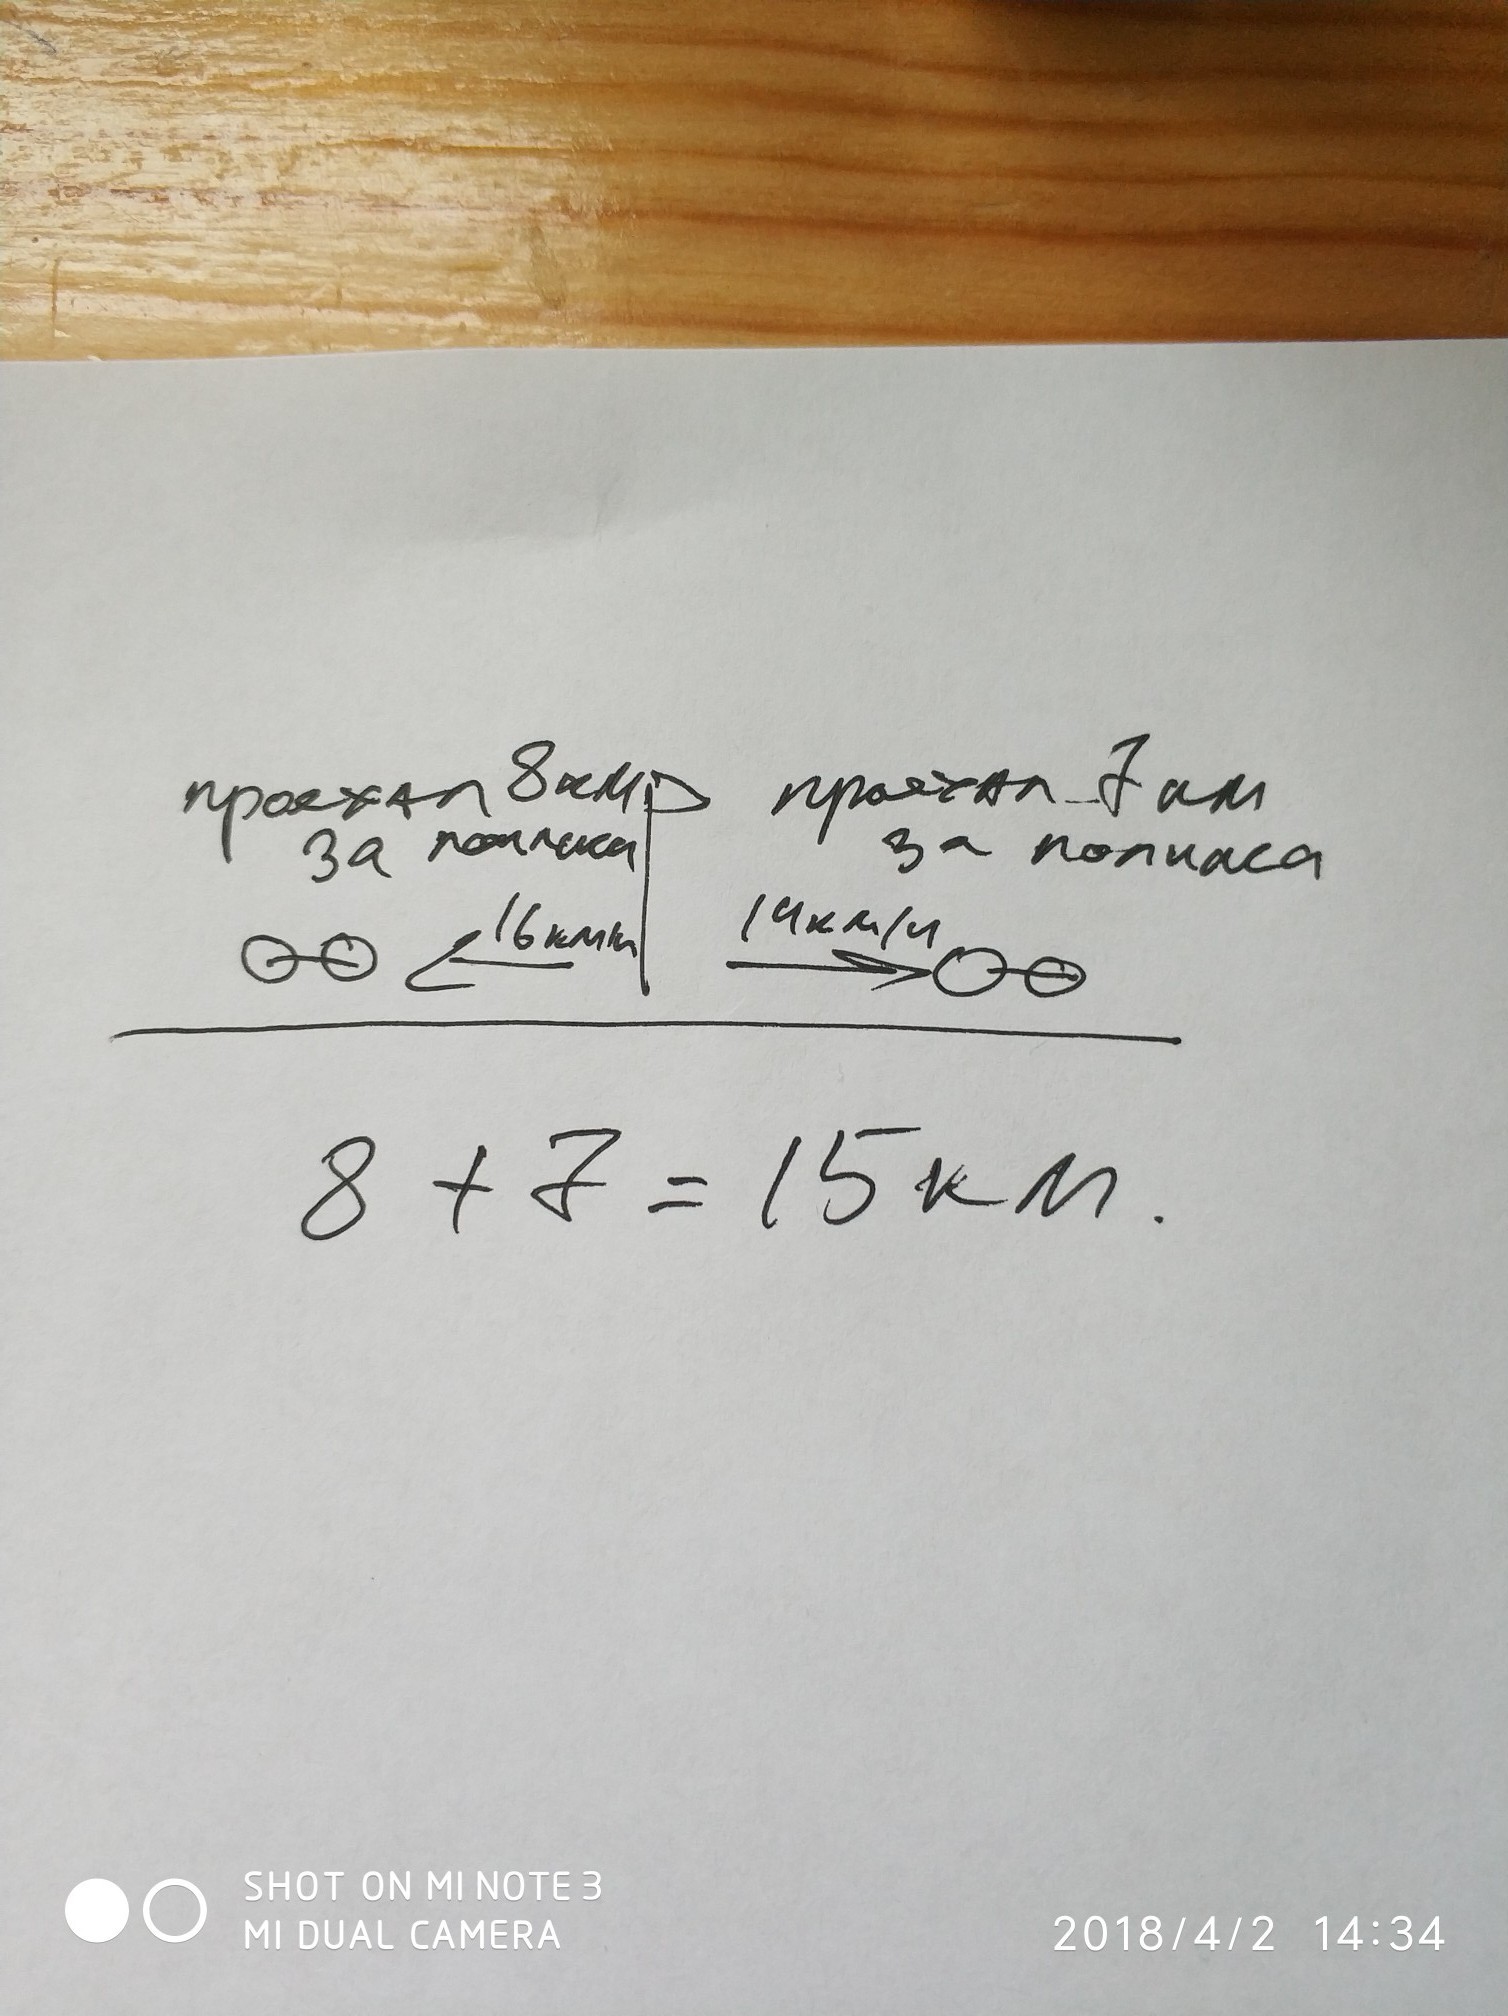 проехал 8км проехал 7 км
за полчаса за полчаса
16км/ч 14км/ч
8 + 7 = 15 км.
SHOT ON MI NOTE 3
MI DUAL CAMERA
2018/4/2 14:34